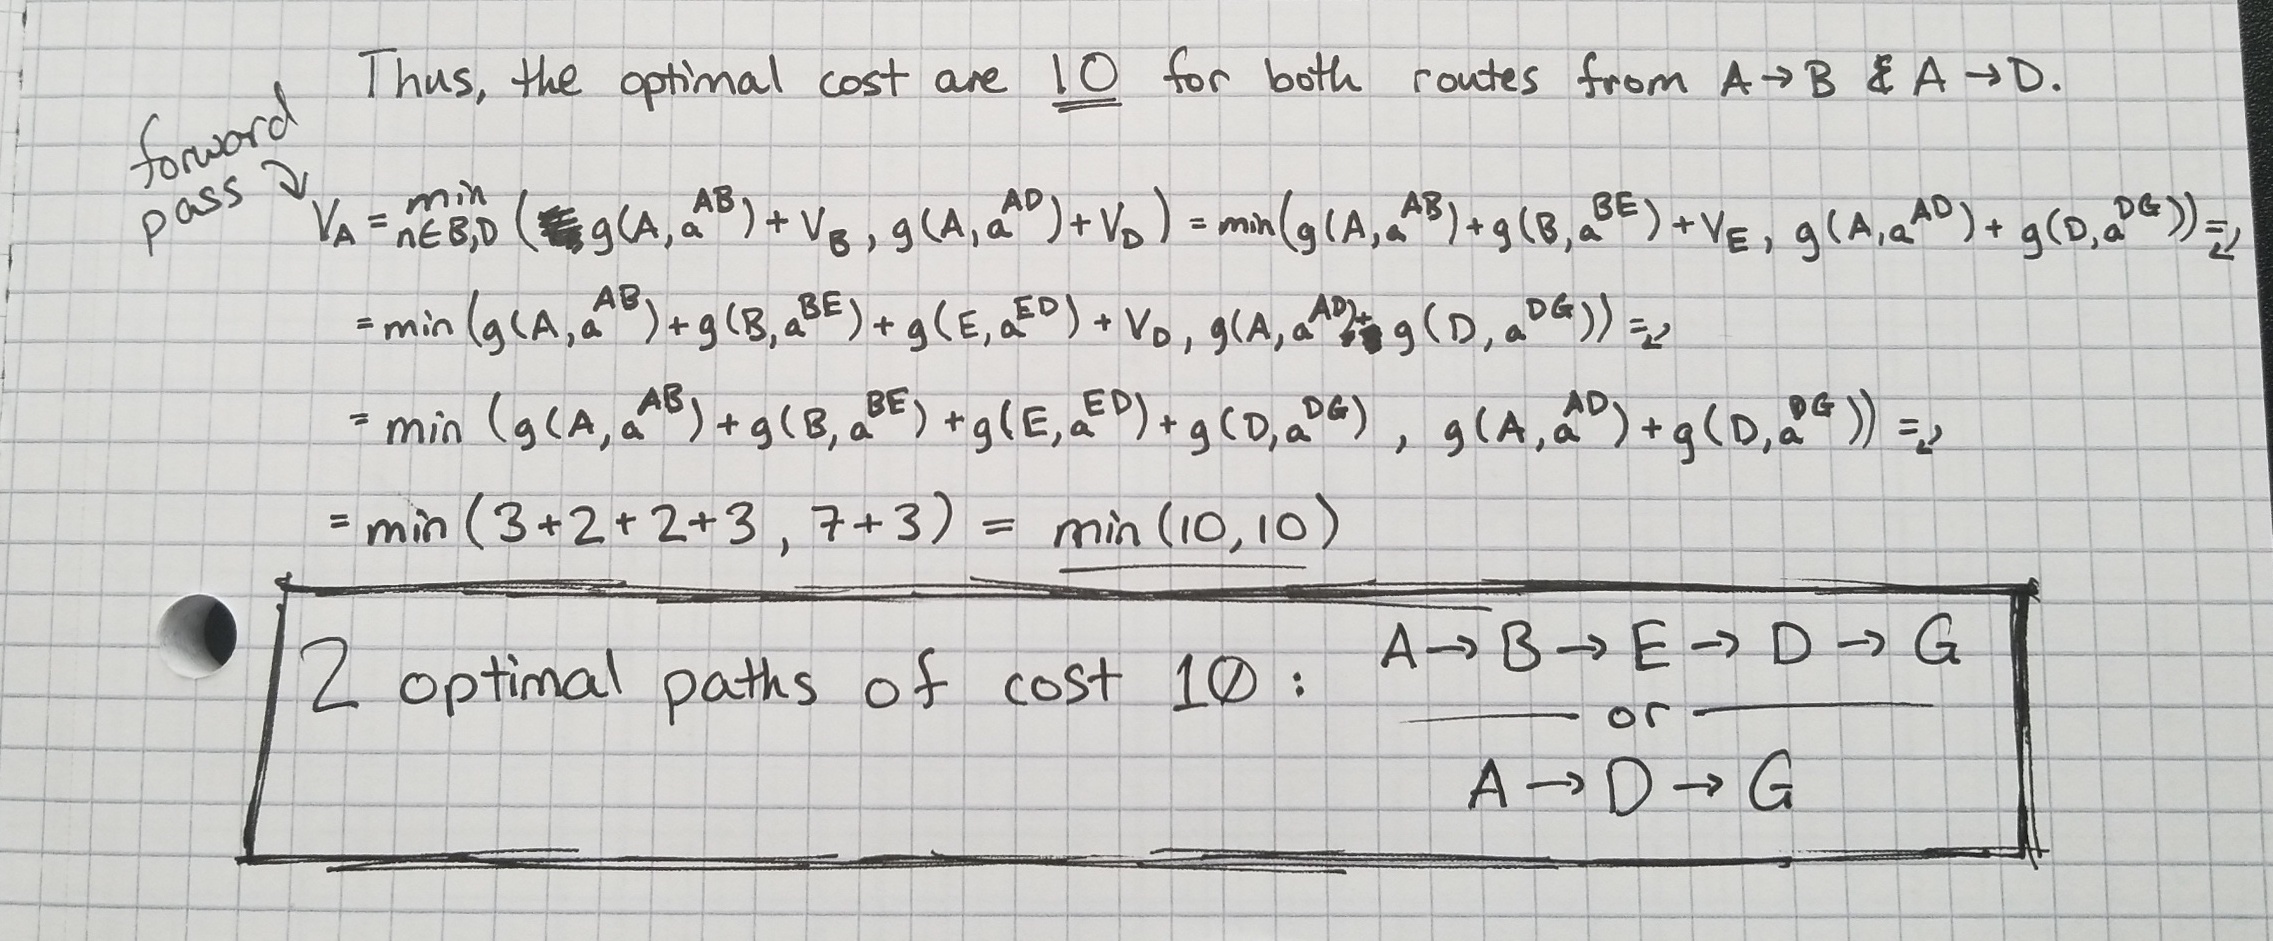 Thus, the optimal cost are 10 for both routes from A → B & A → D.
forward
pass
V_A = min n∈B,D ( g(A, a^AB) + V_B , g(A, a^AD) + V_D ) = min(g(A, a^AB) + g(B, a^BE) + V_E , g(A, a^AD) + g(D, a^DG)) =
= min (g(A, a^AB) + g(B, a^BE) + g(E, a^ED) + V_D , g(A, a^AD) + g(D, a^DG)) =
= min (g(A, a^AB) + g(B, a^BE) + g(E, a^ED) + g(D, a^DG) , g(A, a^AD) + g(D, a^DG)) =
= min (3+2+2+3 , 7+3) = min (10, 10)
A → B → E → D → G
2 optimal paths of cost 10 :
or
A → D → G